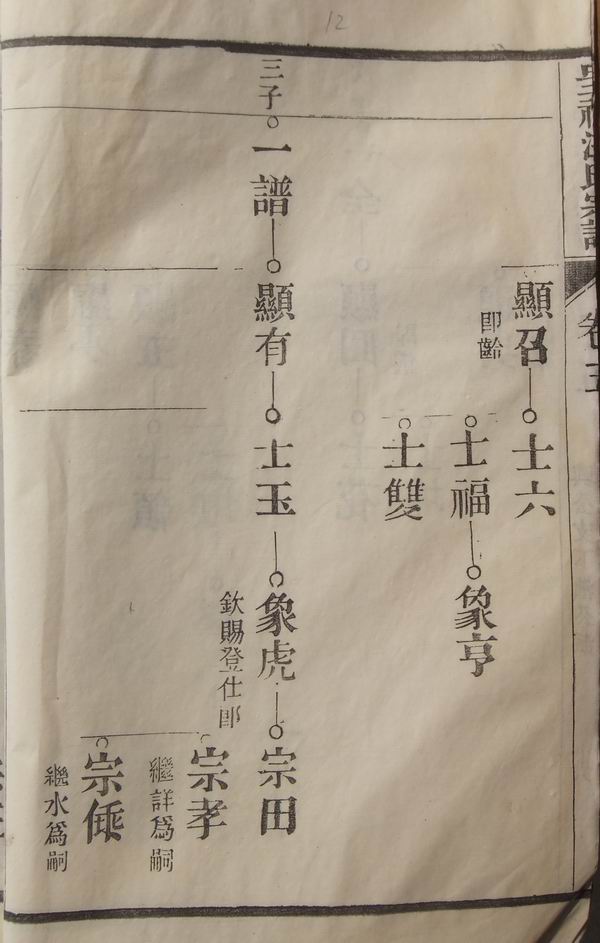 12
氏宗譜
卷五
顯召 士六
即齡
士福 象亨
士雙
三子 一譜 顯有 士玉 象虎 宗田
欽賜登仕郎
宗孝
繼詳爲嗣
宗
繼水爲嗣